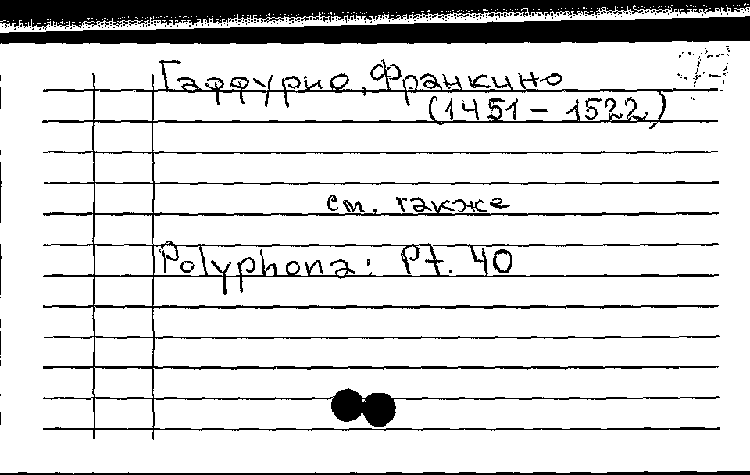 Гаффурио, Франкино
(1451 – 1522)
см. также
Polyphona: Pt. 40